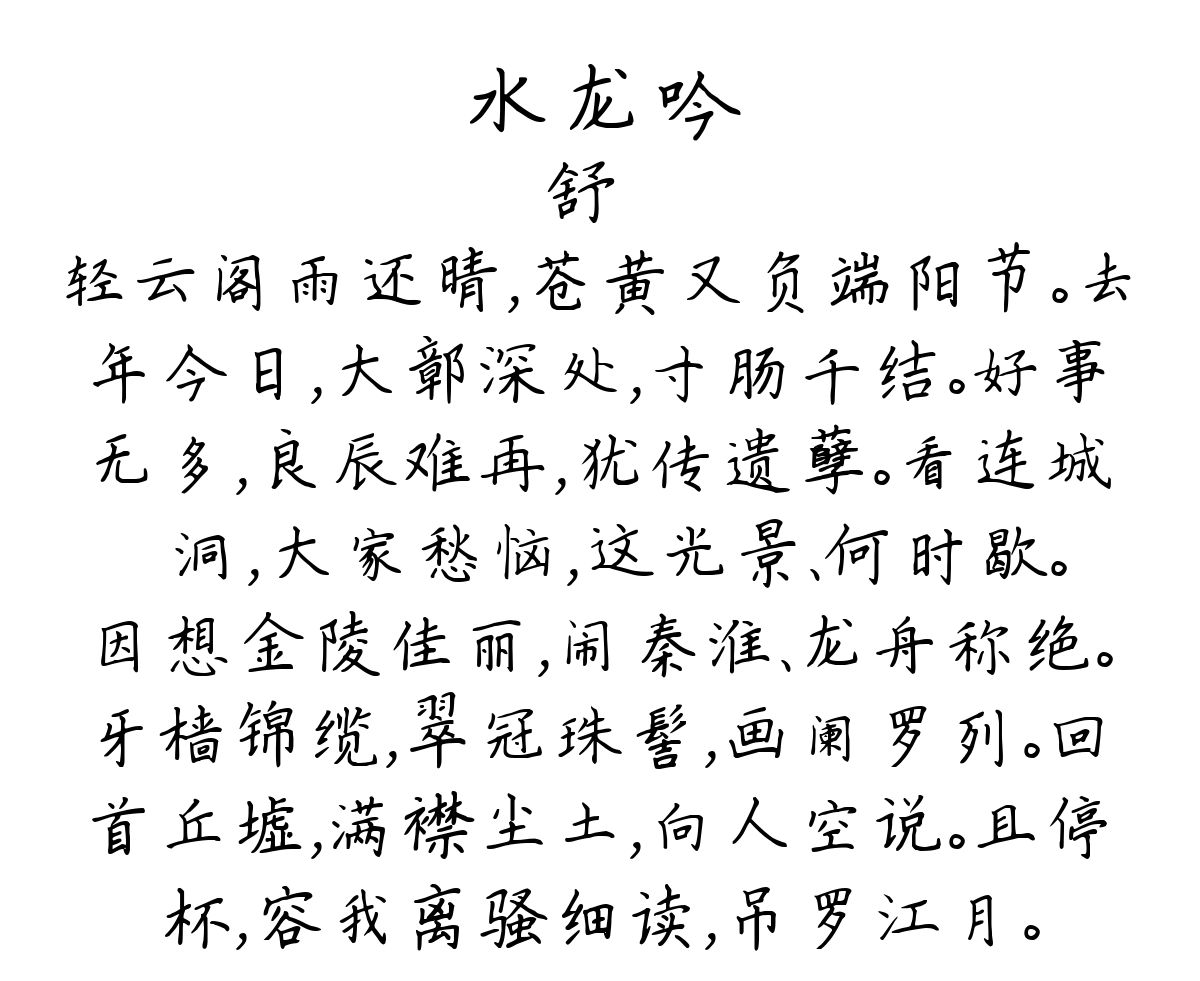 水龙吟
舒
轻云阁雨还晴,苍黄又负端阳节。去
年今日,大鄣深处,寸肠千结。好事
无多,良辰难再,犹传遗孽。看连城
洞,大家愁恼,这光景、何时歇。
因想金陵佳丽,闹秦淮、龙舟称绝。
牙樯锦缆,翠冠珠髻,画阑罗列。回
首丘墟,满襟尘土,向人空说。且停
杯,容我离骚细读,吊罗江月。